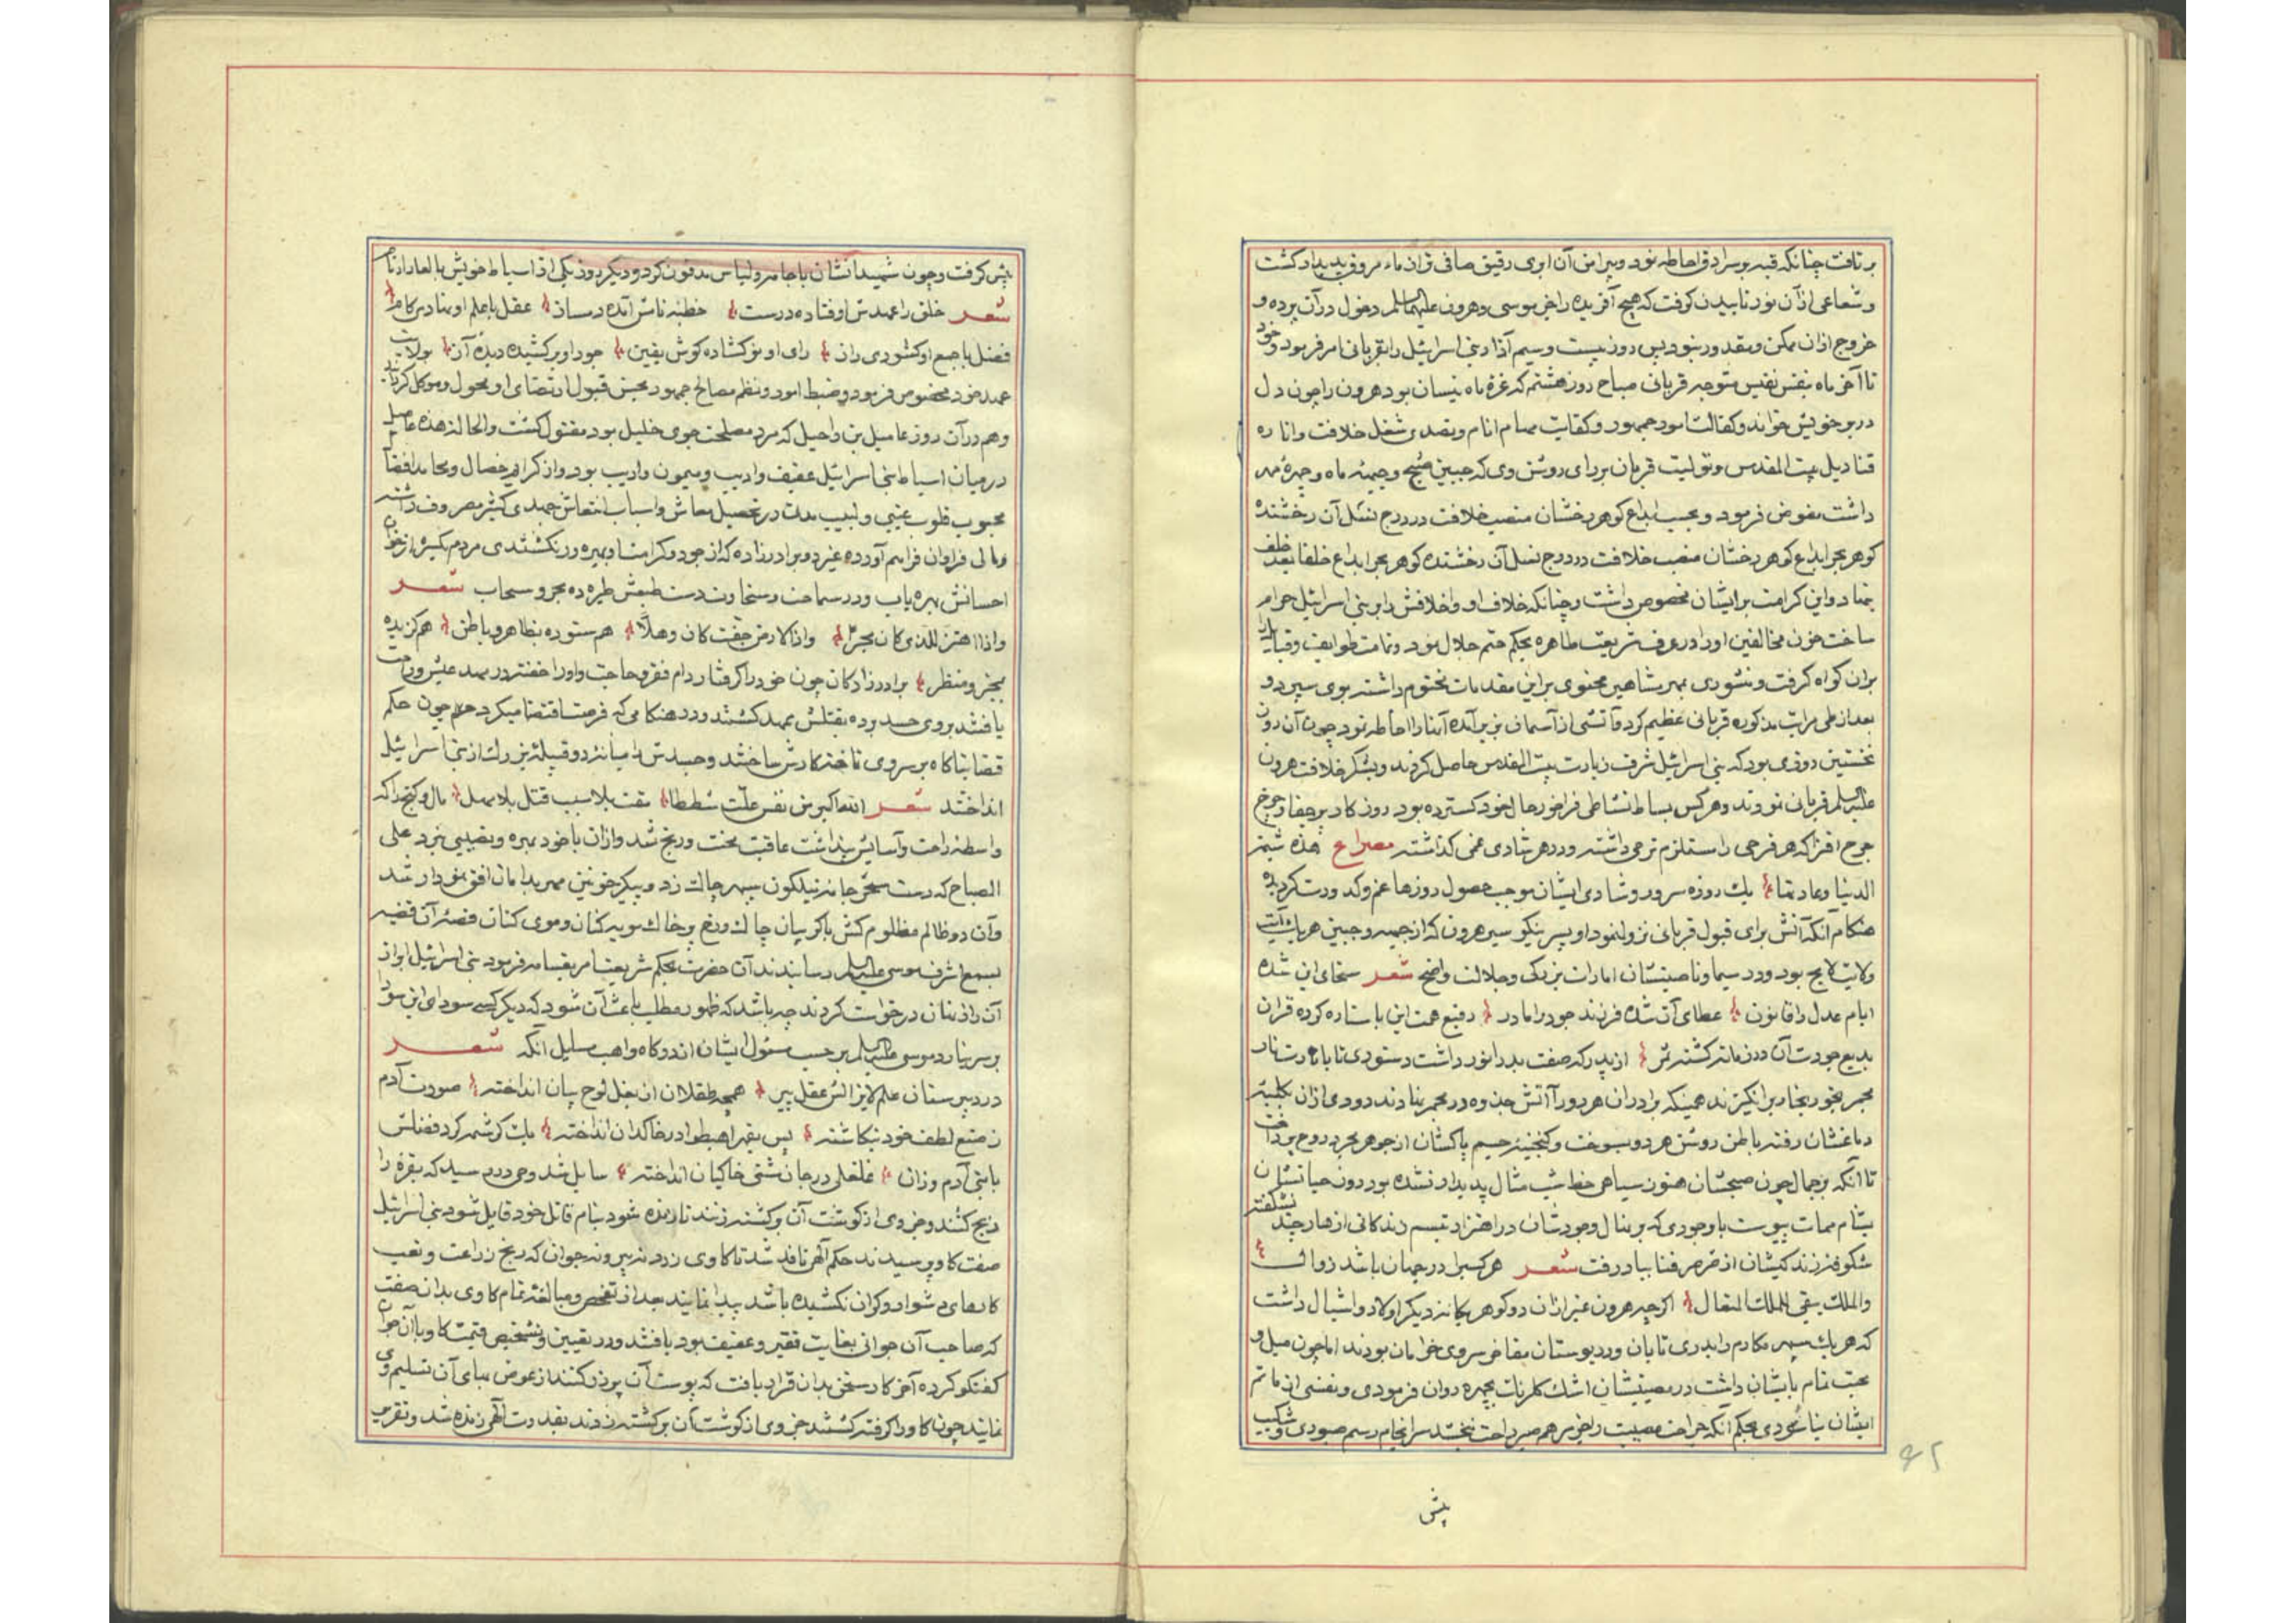 بر تافت چنانکه قبه بر سرادق احاطه نمود و پیرامن آن ابری رقیق صافی تر از ماء مروق پدیدار کشت
و شعاعی از آن نور تابیدن کرفت که هیچ آفریده را جز موسی و هرون علیهما السلم دخول در آن پرده و
خروج از ان ممکن و مقدور نبود پس روز بیست و سیم آذار بنی اسرائیل را بقربانی امر فرمود و خود
تا آخر ماه بنفس نفیس متوجه قربانی صباح روز هشتم که غره ماه نیسان بود هرون را چون دل
در بر خویش خواند و کفالت امور جمهور و کفایت مهام انام و تصدی شغل خلافت و اناره
قنادیل بیت المقدس و تولیت قربان بر رای روشن وی که جبین صبح و جبهه ماه و چهره مهر
داشت مفوض فرمود و بحسب ابداع کوهر رخشان منصب خلافت در درج نسل آن رخشنده
کوهر بحر ابداع کوهر رخشان منصب خلافت در درج نسل آن رخشنده کوهر بحر ابداع خلفا بعد خلف
بنهاد و این کرامت بر ایشان مخصوص داشت و چنانکه خلاف او و اخلافش را بر بنی اسرائیل حرام
ساخت خون مخالفین او را در عرف شریعت طاهره بحکم حتم حلال نمود و تمامت طوایف و قبایل را
بران کواه کرفت و منشوری بمهر مشاهین محتوی بر این مقدمات مختوم داشته بوی سپرد و
بعد از طی مراتب مذکوره قربانی عظیم کرد و آتشی از آسمان بزیر آمده آنها را احاطه نمود چون آن روز
نخستین روزی بود که بنی اسرائیل شرف زیارت بیت المقدس حاصل کردند و بشکر خلافت هرون
علیه السلم قربانی نمودند و هر کس بساط نشاطی فراخور حال خود کسترده بود روز کار پر جفا و چرخ
جرح افزا که هر فرحی را مستلزم ترحی داشته و در هر شادی غمی کذاشته مصراع هذه شیمة
الدنیا و عادتها یک روزه سرور و شادی ایشان موجب حصول روزها غم و کدورت کردیده
هنکام آنکه آتش برای قبول قربانی نزول نمود او پسر نیکو سیر هرون که از جبهه و جبین هر یک آیت
ولایت لایح بود و در سیما و ناصیتشان امارات بزرکی و جلالت واضح شعر سخای این شده
ایام عدل را قانون عطای آن شده فرزند جود را مادر رفیع همت این با ستاره کرده قران
بدیع جودت آن در زمانه کشته ثمر از پدر که صفت بدر انور داشت دستوری تا باتارت نار
مجمر بخور بخار بر انکیزند همینکه برادران هر دو را آتش جذوه در مجمر بنهادند دودی از ان بکلبه
دماغشان رفته باطن روشن هر دو بسوخت و کنجینه جسم پاکشان از جوهر مجرد روح پرداخت
تا آنکه بر جمال چون صبحشان هنوز سیاهی خط شب مثال پدیدار نشده بود روز حیاتشان
بشام ممات پیوست با وجودی که بر نهال وجودشان در اهتزاز تبسم زندکانی ازهار چند نشکفته
شکوفه زندکیشان از صرصر فنا بباد رفت شعر هر کسرا در جهان باشد زوال
والملک یبقی للملک المتعال اکر چه هرون غیر از ان دو کوهر یکانه دیکر اولاد و اشبال داشت
که هر یک سپهر مکارم را بدری تابان و در بوستان مفاخر سروی خرامان بودند اما چون میل و
محبت تمام بایشان داشت در مصیبتشان اشک کلرنک بچهره روان فرمودی و نفسی از ماتم
ایشان نیاسودی بحکم آنکه جراحت مصیبت را جز مرهم صبر راحت نبخشد سر انجام رسم صبوری و شکیب
پیش
۴۲
پیش کرفت و چون شهیدانشان با جامه و لباس مدفون کرد و دیکر روز یکی از اسباط خویش بالعازار نام
شعر خلق را عهدش اوفتاده درست خطبه نامش آمده دمساز عقل با علم او نهاد کام
فضل با جمع او کشوری راز رای او بر کشاده کوش یقین جود او بر کشیده دیده آز بولایت
عهد خود مخصوص فرمود و ضبط امور و نظم مصالح جمهور بحسن قبول ارتضای او محول و موکل کردانید
و هم در آن روز عامیل بن راحیل که مرد مصلحت جوی خلیل بود مقتول کشت و الحالة هذه عامیل
در میان اسباط بنی اسرائیل عفیف و ادیب و میمون و اریب بود و از کرایم خصال و محامد افضال
محبوب قلوب غیبی و لبیب مدت در تحصیل معاش و اسباب انتعاش جهدی کثیر مصروف داشته
و مالی فراوان فراهم آورده غیر دو برادرزاده که از جود و کرامتنا و بهره ور نکشتندی مردم یکسره از خوان
احسانش بهره یاب و در سماحت و سخاوت دست طبعش طیره ده بحر و سحاب شعر
واذا اهتز للندی کان بحرا واذا الارض جفت کان وهلا هم ستوده بظاهر و باطن هم کزیده
بمخبر و منظر برادرزادکان چون خود را کرفتار دام فقر و حاجت و او را خفته در مهد عیش و راحت
یافتند بر وی حسد برده بقتلش بمهد کشتند و در هنکامی که فرصت اقتضا میکرد هم چون حکم
قضا بناکاه بر سر وی تاخته کارش ساختند و جسدش را میانه دو قبیله بزرک از بنی اسرائیل
انداختند شعر الله اکبر من نفس علت شططا بقت بلا سبب قتل بلا مهل مال و کنج را که
واسطه راحت و آسایش پنداشت عاقبت محنت و رنج شد و از ان با خود بهره و نصیبی نبرد علی
الصباح که دست سحر جامه نیلکون سپهر چاک زد و پیکر خونین مهر بدامان افق نمودار شد
و آن دو ظالم مظلوم کش با کریبان چاک و رخ بر خاک مویه کنان و موی کنان قصه آن قضیه
بسمع اشرف موسی علیه السلم رسانیدند آن حضرت بحکم شریعت امر بقسامه فرمود بنی اسرائیل ابراز
آن راز نهان درخواست کردند چه باشد که ظهور مطلب باعث آن شود که دیکر کسی سودای این سودا
بر سر نیارد موسی علیه السلم بر حسب مسئول ایشان از درکاه واهب سلیل آنکه شعر
در دبیرستان علم لایزالش عقل پیر همچو طفلان از بغل لوح بیان انداخته صورت آدم
ز صنع لطف خود نکاشته پس بقهر اهبطوا در خاکدان انداخته یک کرشمه کرد فضلش
با بنی آدم وزان غلغلی در جان مشتی خاکیان انداخته سایل شد وحی در رسید که بقره را
ذبح کنند و جزوی از کوشت آن بر کشته زنند تا زنده شود بنام قاتل خود قایل شود بنی اسرائیل
صفت کاو پرسیدند حکم الهی نافذ شد تا کاوی زرد نه پیر و نه جوان که رنج زراعت و تعب
کارهای دشوار و کران نکشیده باشد پیدا نمایند بعد از تفحص و مبالغه تمام کاوی بدان صفت
که صاحب آن جوانی بغایت فقیر و عفیف بود یافتند و در تعیین و تشخیص قیمت کاو با آن جوان
کفتکو کرده آخر کار سخن بدان قرار یافت که پوست آن پر زر کنند از عوض بهای آن تسلیم وی
نمایند چون کاو را کرفته کشتند جزوی از کوشت آن بر کشته زدند بقدرت الهی زنده شد و تقریر